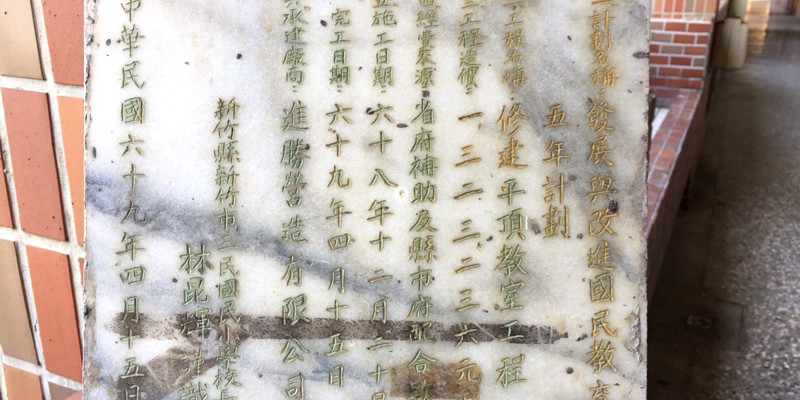 計劃名稱：發展與改進國民教育
五年計劃
工程名稱：修建平頂教室工程
三、工程造價：一三二三二三六元
經費來源：省府補助及縣市府配合
五、施工日期：六十八年十二月二十日
完工日期：六十九年四月十五日
承建廠商：進勝營造有限公司
新竹縣新竹市民國民小學校長
林昆輝
中華民國六十九年四月十五日